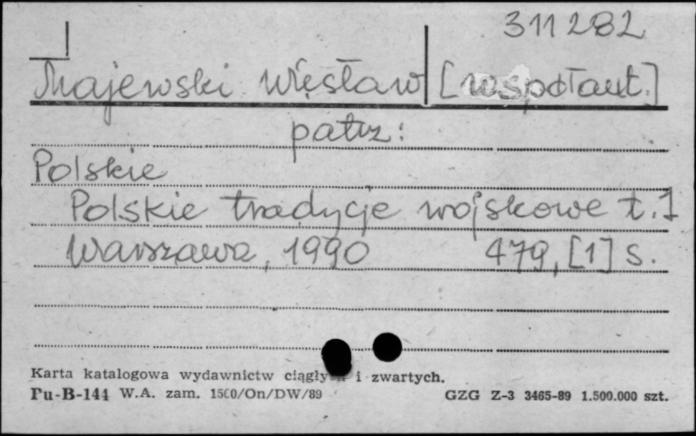 311282
Majewski Więsław [współaut.]
patrz:
Polskie
Polskie tradycje wojskowe t. I
Warszawa, 1990 479, [1] s.
Karta katalogowa wydawnictw ciągłych i zwartych.
Pu-B-144 W.A. zam. 1500/On/DW/89 GZG Z-3 3465-89 1.500.000 szt.